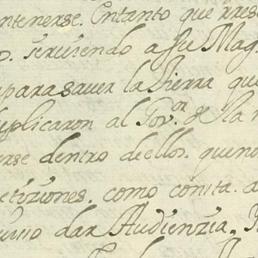 ntenerse. Entanto que rres
o. siruiendo a su Mag.
para sauer la tierra que
uplicaron al Gov.or de la n
rse dentro de ellos. queno
eticiones. como consta. a
uuio dar Audienzia.